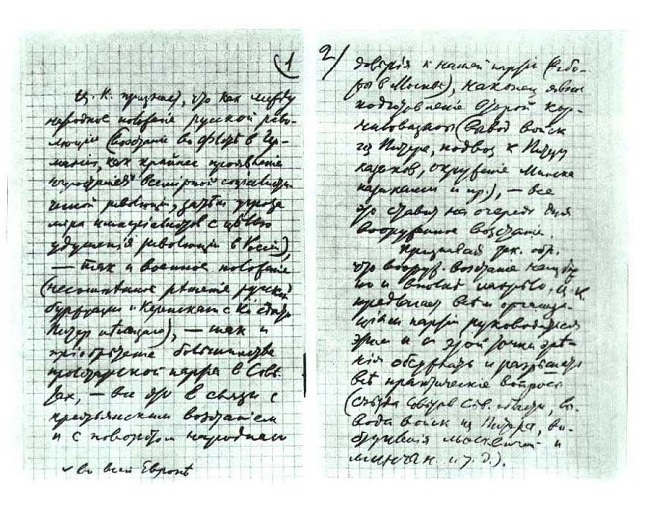 1
Ц. К. признает, что как между
народное положение русской рево-
люции (восстание во флоте в Гер-
мании, как крайнее проявление
нарастания всемирной социалисти-
ческой революции, затем угроза
мира империалистов с целью
удушения революции в России),
— так и военное положение
(несомненное решение русской
буржуазии и Керенского с Кº сдать
Питер немцам), — так и
приобретение большинства
пролетарской партией в Сове-
тах, — все это в связи с
крестьянским восстанием
и с поворотом народного
✓ во всей Европе
2/
доверия к нашей партии (выбо-
ры в Москве), наконец явное
подготовление второй кор-
ниловщины (вывод войск
из Питера, подвоз к Питеру
казаков, окружение Минска
казаками и пр.), — все
это ставит на очередь дня
вооруженное восстание.
Признавая так. обр.,
что вооруж. восстание неизбеж-
но и вполне назрело, Ц. К.
предлагает всем организа-
циям партии руководиться
этим и с этой точки зре-
ния обсуждать и разрешать
все практические вопросы
(съезда Советов Сев. области, вы-
вода войск из Питера, вы-
ступления москвичей и
минчан и т. д.).